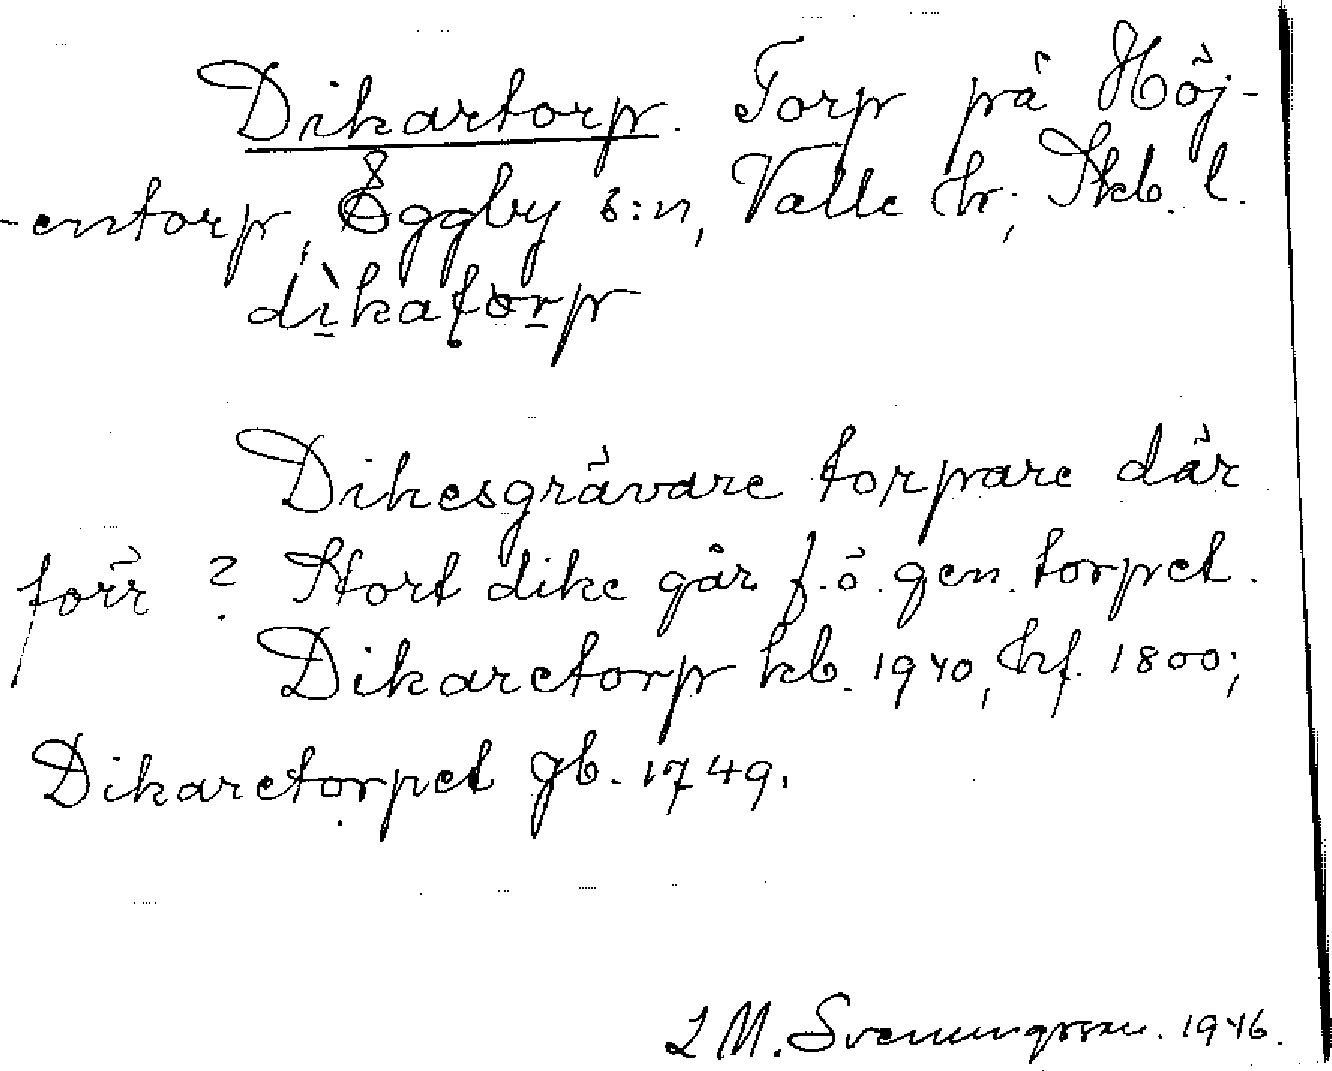 Dikartorp. Torp på Höj-
-entorp, Eggby s:n, Valle hr; Skb. l.
dìkatorp
Dikesgrävare torpare där
förr? Stort dike går f.ö. gen. torpet.
Dikaretorp kb. 1940, hf. 1800;
Dikaretorpet gb. 1749.
L M. Svenungsson. 1946.